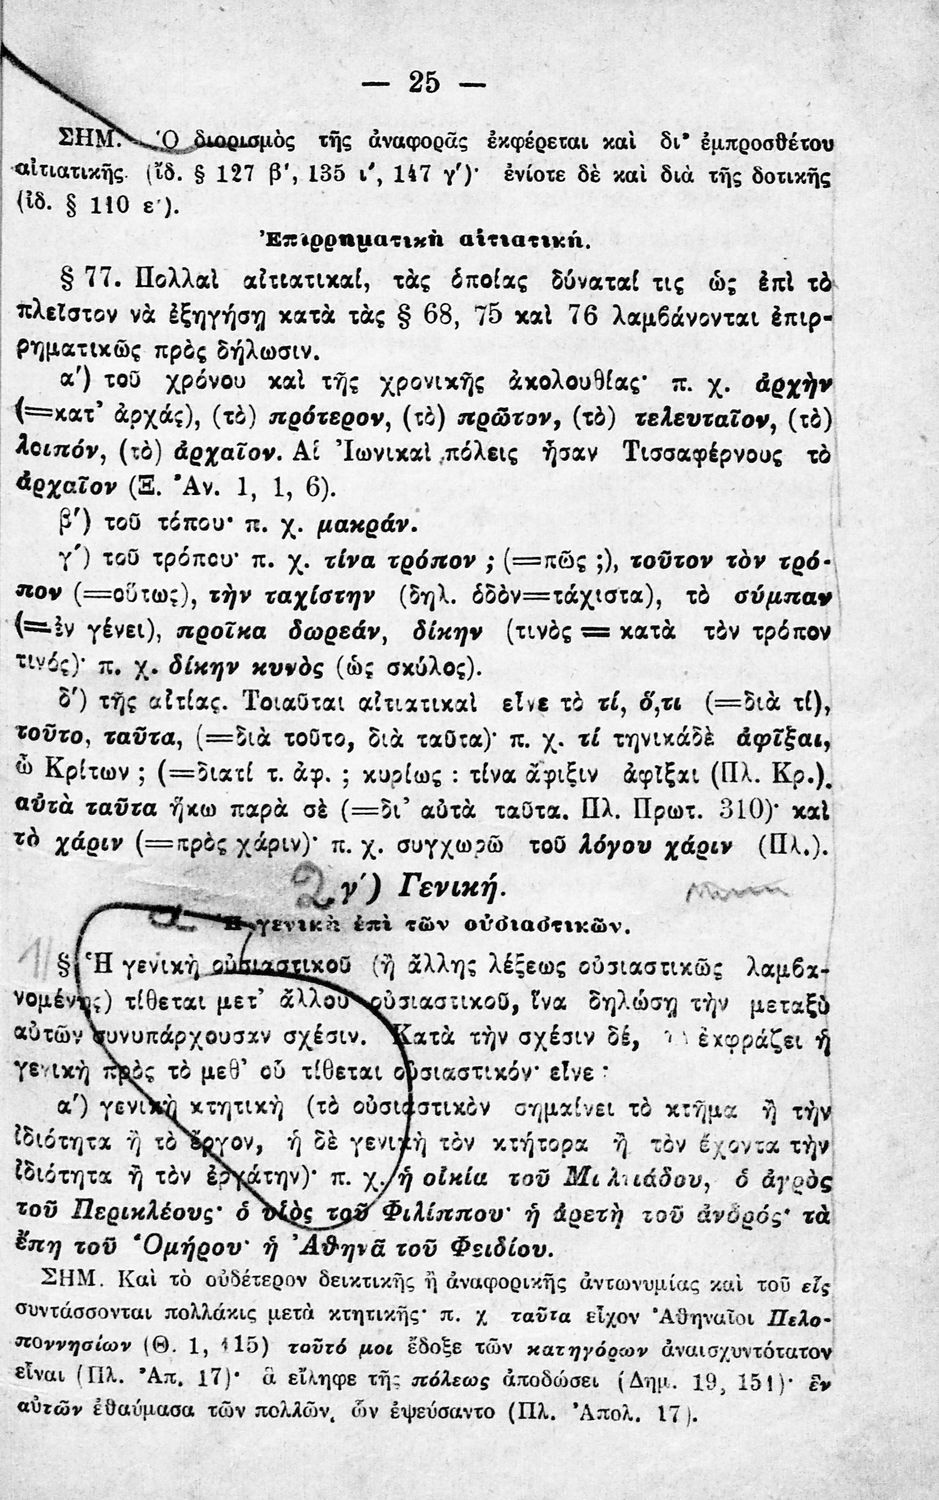 — 25 —
ΣΗΜ. Ὁ διορισμὸς τῆς ἀναφορᾶς ἐκφέρεται καὶ δι' ἐμπροσθέτου
αἰτιατικῆς (ἴδ. § 127 β', 135 ι', 147 γ')· ἐνίοτε δὲ καὶ διὰ τῆς δοτικῆς
(ἰδ. § 110 ε').
Ἐπιρρηματικὴ αἰτιατική.
§ 77. Πολλαὶ αἰτιατικαί, τὰς ὁποίας δύναταί τις ὡς ἐπὶ τὸ
πλεῖστον νὰ ἐξηγήσῃ κατὰ τὰς § 68, 75 καὶ 76 λαμβάνονται ἐπιρ-
ρηματικῶς πρὸς δήλωσιν.
α') τοῦ χρόνου καὶ τῆς χρονικῆς ἀκολουθίας· π. χ. ἀρχὴν
(=κατ' ἀρχάς), (τὸ) πρότερον, (τὸ) πρῶτον, (τὸ) τελευταῖον, (τὸ)
λοιπόν, (τὸ) ἀρχαῖον. Αἱ Ἰωνικαὶ πόλεις ἦσαν Τισσαφέρνους τὸ
ἀρχαῖον (Ξ. Ἀν. 1, 1, 6).
β') τοῦ τόπου· π. χ. μακράν.
γ') τοῦ τρόπου· π. χ. τίνα τρόπον ; (=πῶς ;), τοῦτον τὸν τρό-
πον (=οὕτως), τὴν ταχίστην (δηλ. ὁδὸν=τάχιστα), τὸ σύμπαν
(=ἐν γένει), προῖκα δωρεάν, δίκην (τινὸς = κατὰ τὸν τρόπον
τινός)· π. χ. δίκην κυνὸς (ὡς σκύλος).
δ') τῆς αἰτίας. Τοιαῦται αἰτιατικαὶ εἶνε τὸ τί, ὅ,τι (=διὰ τί),
τοῦτο, ταῦτα, (=διὰ τοῦτο, διὰ ταῦτα)· π. χ. τί τηνικάδὲ ἀφῖξαι,
ὦ Κρίτων ; (=διατί τ. ἀφ. ; κυρίως : τίνα ἄφιξιν ἀφῖξαι (Πλ. Κρ.).
αὐτὰ ταῦτα ἥκω παρὰ σὲ (=δι' αὐτὰ ταῦτα. Πλ. Πρωτ. 310)· καὶ
τὸ χάριν (=πρὸς χάριν)· π. χ. συγχωρῶ τοῦ λόγου χάριν (Πλ.).
2 γ') Γενική.
α Ἡ γενικὴ ἐπὶ τῶν οὐσιαστικῶν.
§ Ἡ γενικὴ οὐσιαστικοῦ (ἢ ἄλλης λέξεως οὐσιαστικῶς λαμβα-
νομένης) τίθεται μετ' ἄλλου οὐσιαστικοῦ, ἵνα δηλώσῃ τὴν μεταξὺ
αὐτῶν συνυπάρχουσαν σχέσιν. Κατὰ τὴν σχέσιν δέ, ἐκφράζει ἡ
γενικὴ πρὸς τὸ μεθ' οὗ τίθεται οὐσιαστικόν· εἶνε :
α') γενικὴ κτητικὴ (τὸ οὐσιαστικὸν σημαίνει τὸ κτῆμα ἢ τὴν
ἰδιότητα ἢ τὸ ἔργον, ἡ δὲ γενικὴ τὸν κτήτορα ἢ τὸν ἔχοντα τὴν
ἰδιότητα ἢ τὸν ἐργάτην)· π. χ. ἡ οἰκία τοῦ Μιλτιάδου, ὁ ἀγρὸς
τοῦ Περικλέους· ὁ υἱὸς τοῦ Φιλίππου· ἡ ἀρετὴ τοῦ ἀνδρός· τὰ
ἔπη τοῦ Ὁμήρου· ἡ Ἀθηνᾶ τοῦ Φειδίου.
ΣΗΜ. Καὶ τὸ οὐδέτερον δεικτικῆς ἢ ἀναφορικῆς ἀντωνυμίας καὶ τοῦ εἷς
συντάσσονται πολλάκις μετὰ κτητικῆς· π. χ ταῦτα εἶχον Ἀθηναῖοι Πελο-
ποννησίων (Θ. 1, 115) τοῦτό μοι ἔδοξε τῶν κατηγόρων ἀναισχυντότατον
εἶναι (Πλ. Ἀπ. 17)· ἃ εἴληφε τῆς πόλεως ἀποδώσει (Δημ. 19, 151)· ἓν
αὐτῶν ἐθαύμασα τῶν πολλῶν, ὧν ἐψεύσαντο (Πλ. Ἀπολ. 17).